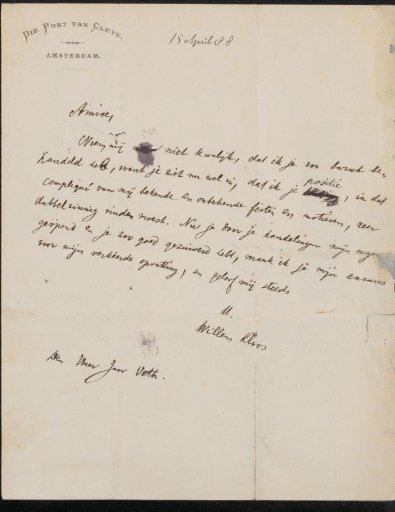 DIE PORT VAN CLEVE.
AMSTERDAM.
15 April 88
Amice,
Neem mij niet kwalijk, dat ik je zoo be-
handeld heb, want je ziet nu wel in, dat ik je positie, in dat
compliqué van mij bekende en onbekende feiten en motieven, zeer
dubbelzinnig vinden moest. Nu je door je handelingen mijn oogen
geopend en je zoo goed gezuiverd hebt, maak ik je mijn excuses
voor mijn verkeerde opvatting, en geloof mij steeds
t.t.
Willem Kloos
Den Heer Jan Veth.